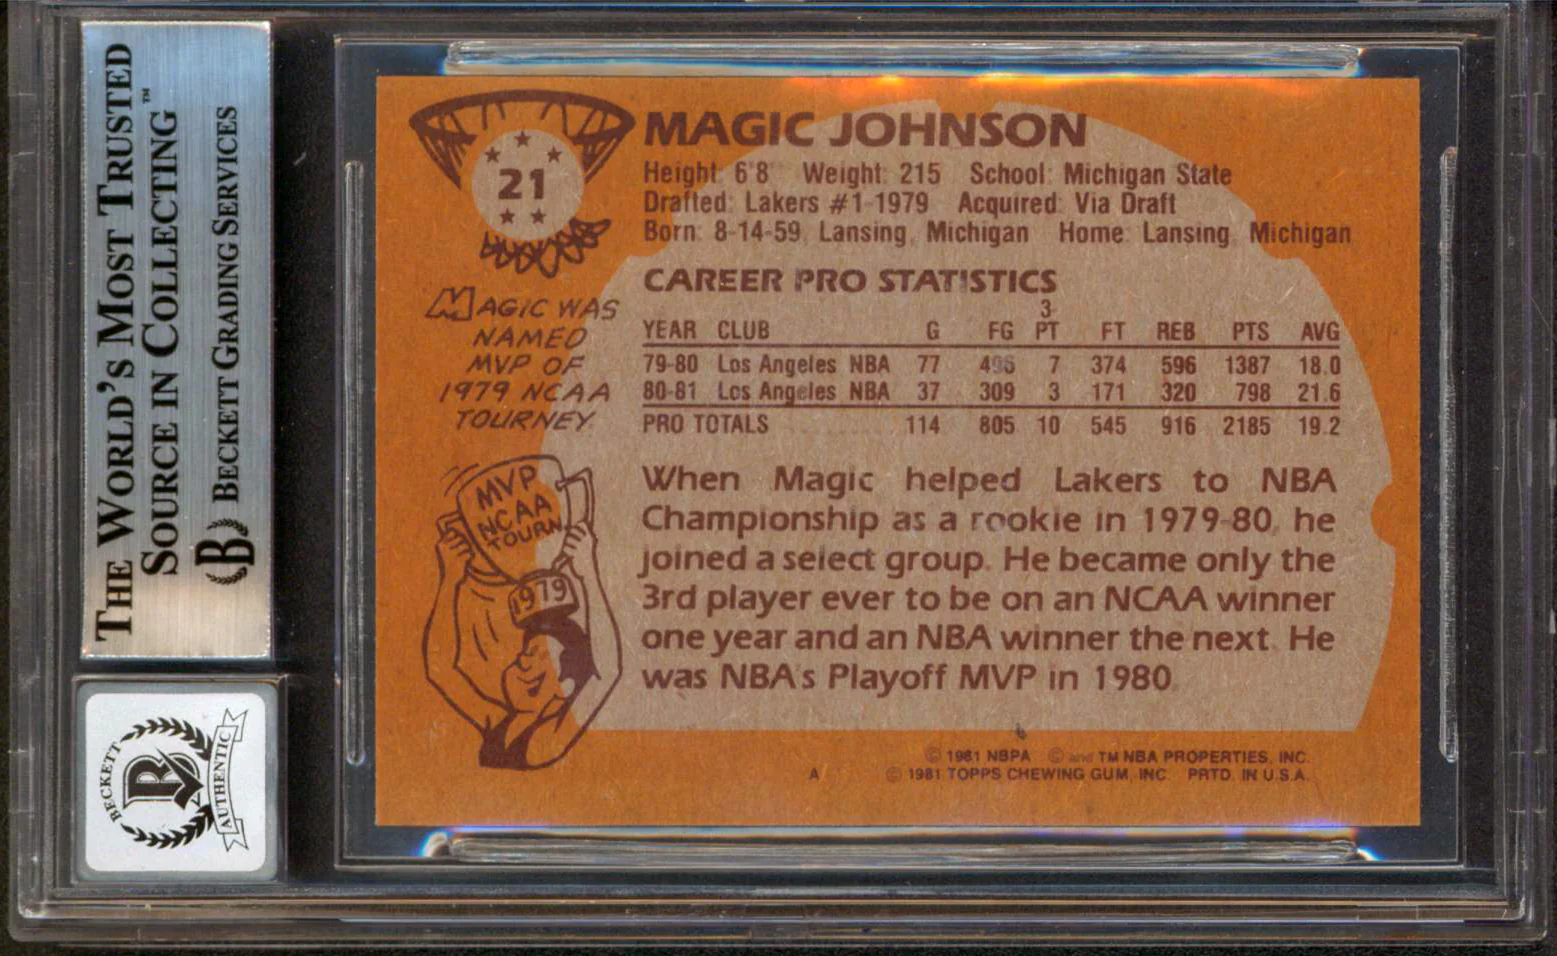 THE WORLD'S MOST TRUSTED
SOURCE IN COLLECTING™
BECKETT GRADING SERVICES
B
BECKETT
B
AUTHENTIC
21
MAGIC JOHNSON
Height: 6'8" Weight: 215 School: Michigan State
Drafted: Lakers #1-1979 Acquired: Via Draft
Born: 8-14-59, Lansing, Michigan Home: Lansing, Michigan
MAGIC WAS
NAMED
MVP OF
1979 NCAA
TOURNEY.
MVP
NCAA
TOURN.
1979
CAREER PRO STATISTICS
YEAR CLUB G FG 3-PT FT REB PTS AVG
79-80 Los Angeles NBA 77 496 7 374 596 1387 18.0
80-81 Los Angeles NBA 37 309 3 171 320 798 21.6
PRO TOTALS 114 805 10 545 916 2185 19.2
When Magic helped Lakers to NBA
Championship as a rookie in 1979-80, he
joined a select group. He became only the
3rd player ever to be on an NCAA winner
one year and an NBA winner the next. He
was NBA's Playoff MVP in 1980.
© 1981 NBPA © and TM NBA PROPERTIES, INC.
A © 1981 TOPPS CHEWING GUM, INC. PRTD. IN U.S.A.